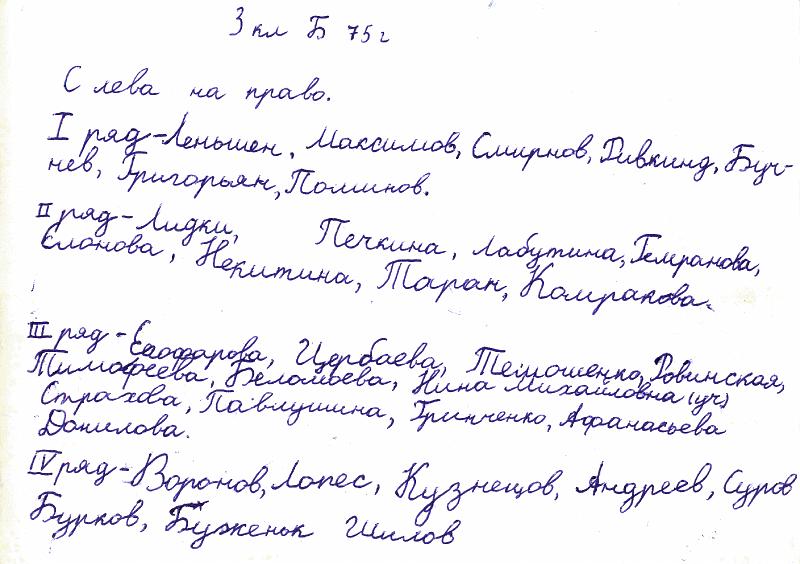 3 кл Б 75 г
С лева на право.
I ряд - Леньшен, Максимов, Смирнов, Ривкинд, Буч-
нев, Григорьян, Полшинов.
II ряд - Лидки, Печкина, Лабутина, Темранова,
Слонова, Некитина, Таран, Комракова.
III ряд - Цербаева, Темошенко, Ровинская,
Тимофеева, Беломоева, Нина Михайловна (уч)
Страхова, Павлушина, Гринченко, Афанасьева
Данилова.
IV ряд - Воронов, Лопес, Кузнецов, Андреев, Суров
Бурков, Буженьк Шилов